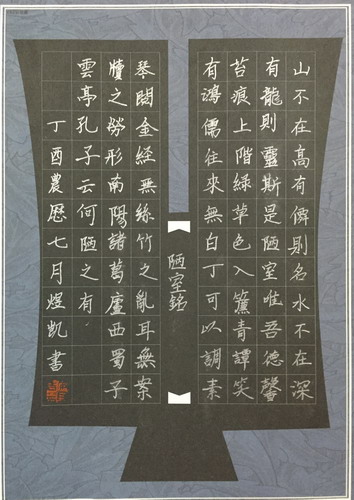 山不在高有僊則名水不在深
有龍則靈斯是陋室唯吾德馨
苔痕上階綠草色入簾青譚笑
有鴻儒往來無白丁可以調素
陋室銘
琴閱金経無絲竹之亂耳無案
牘之勞形南陽諸葛廬西蜀子
雲亭孔子云何陋之有
丁酉農歷七月煜凱書